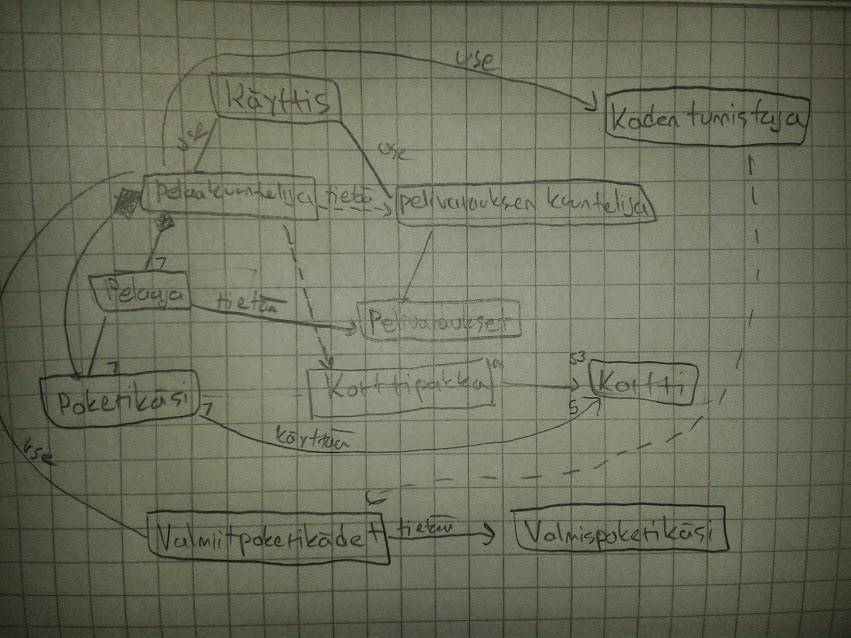 use
Käyttis
Käden tunnistaja
use
use
Pelaakuuntelija
tietää
pelivarauksen kuuntelija
1
Pelaaja
tietää
Pelivaraukset
1
Korttipakka
53
Kortti
Pokerikäsi
1
5
käyttää
use
Valmiitpokerikädet
tietää
Valmispokerikäsi